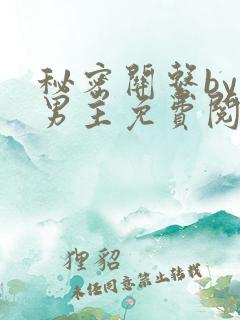 秘密關繫by
男主免費閱
狸貂
未经同意禁止转载